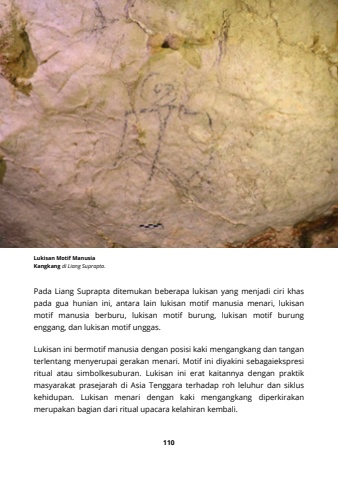 Lukisan Motif Manusia
Kangkang di Liang Suprapta.
Pada Liang Suprapta ditemukan beberapa lukisan yang menjadi ciri khas
pada gua hunian ini, antara lain lukisan motif manusia menari, lukisan
motif manusia berburu, lukisan motif burung, lukisan motif burung
enggang, dan lukisan motif unggas.
Lukisan ini bermotif manusia dengan posisi kaki mengangkang dan tangan
terlentang menyerupai gerakan menari. Motif ini diyakini sebagaiekspresi
ritual atau simbolkesuburan. Lukisan ini erat kaitannya dengan praktik
masyarakat prasejarah di Asia Tenggara terhadap roh leluhur dan siklus
kehidupan. Lukisan menari dengan kaki mengangkang diperkirakan
merupakan bagian dari ritual upacara kelahiran kembali.
110